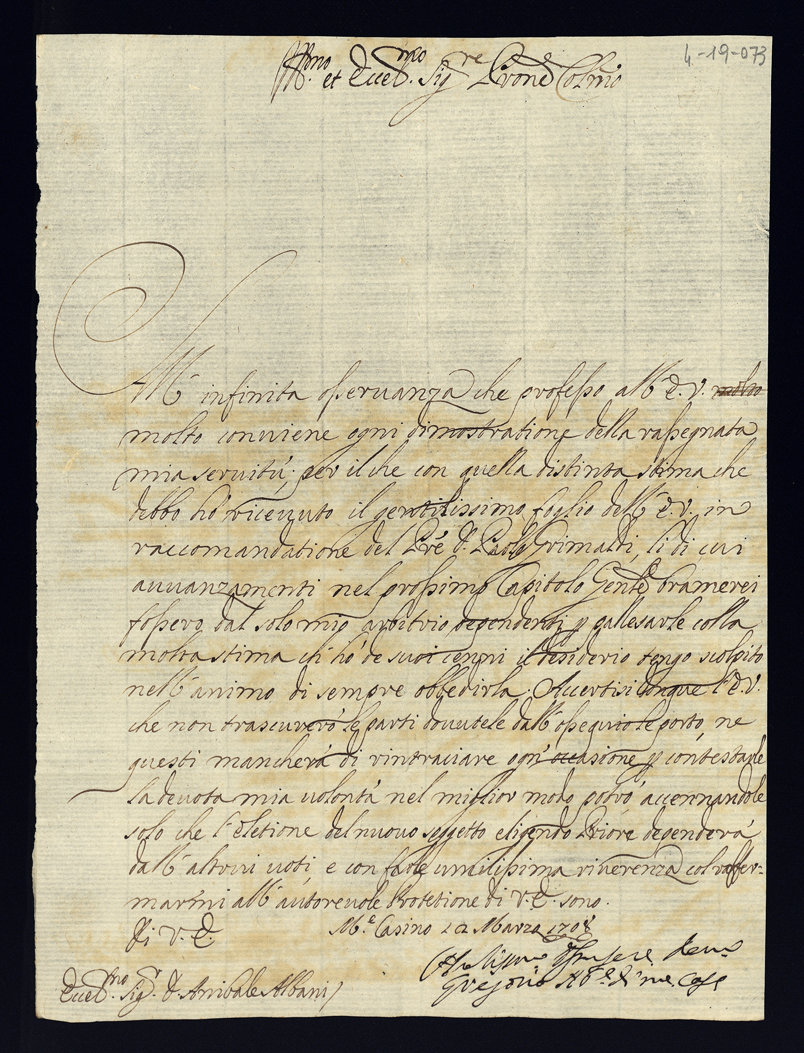 4-19-073
Ill.mo et Eccell.mo Sig.re Prone Colmo
All' infinita osservanza che professo all' E.V.
molto conviene ogni dimostratione della rassegnata
mia servitù; per il che con quella distinta stima che
debbo hò ricevuto il gentilissimo foglio dell' E.V. in
raccomandatione del Pre D. Paolo Grimaldi, li di cui
avvanzamenti nel prossimo Capitolo Genle bramerei
fossero dal solo mio arbitrio dependenti p pallesarle colla
molta stima ch' hò de suoi cenni il desiderio tengo scolpito
nell' animo di sempre obbedirla. Accertisi dunque l' E.V.
che non trascurerò le parti dovutele dall' ossequio le porto, ne
questi mancherà di rintracciare ogn' occasione p contestarle
la devota mia volontà nel miglior modo potrò, accennandole
solo che l' eletione del nuovo soggetto eligendo Priore dependerà
dall' altrui voti, e con farle umilissima riverenza col raffer-
marmi all' autorevole Protetione di V.E. sono.
Di V.E.
M.e Casino 12 Marzo 1708
Eccell.mo Sig.r D. Annibale Albani
Gregorio